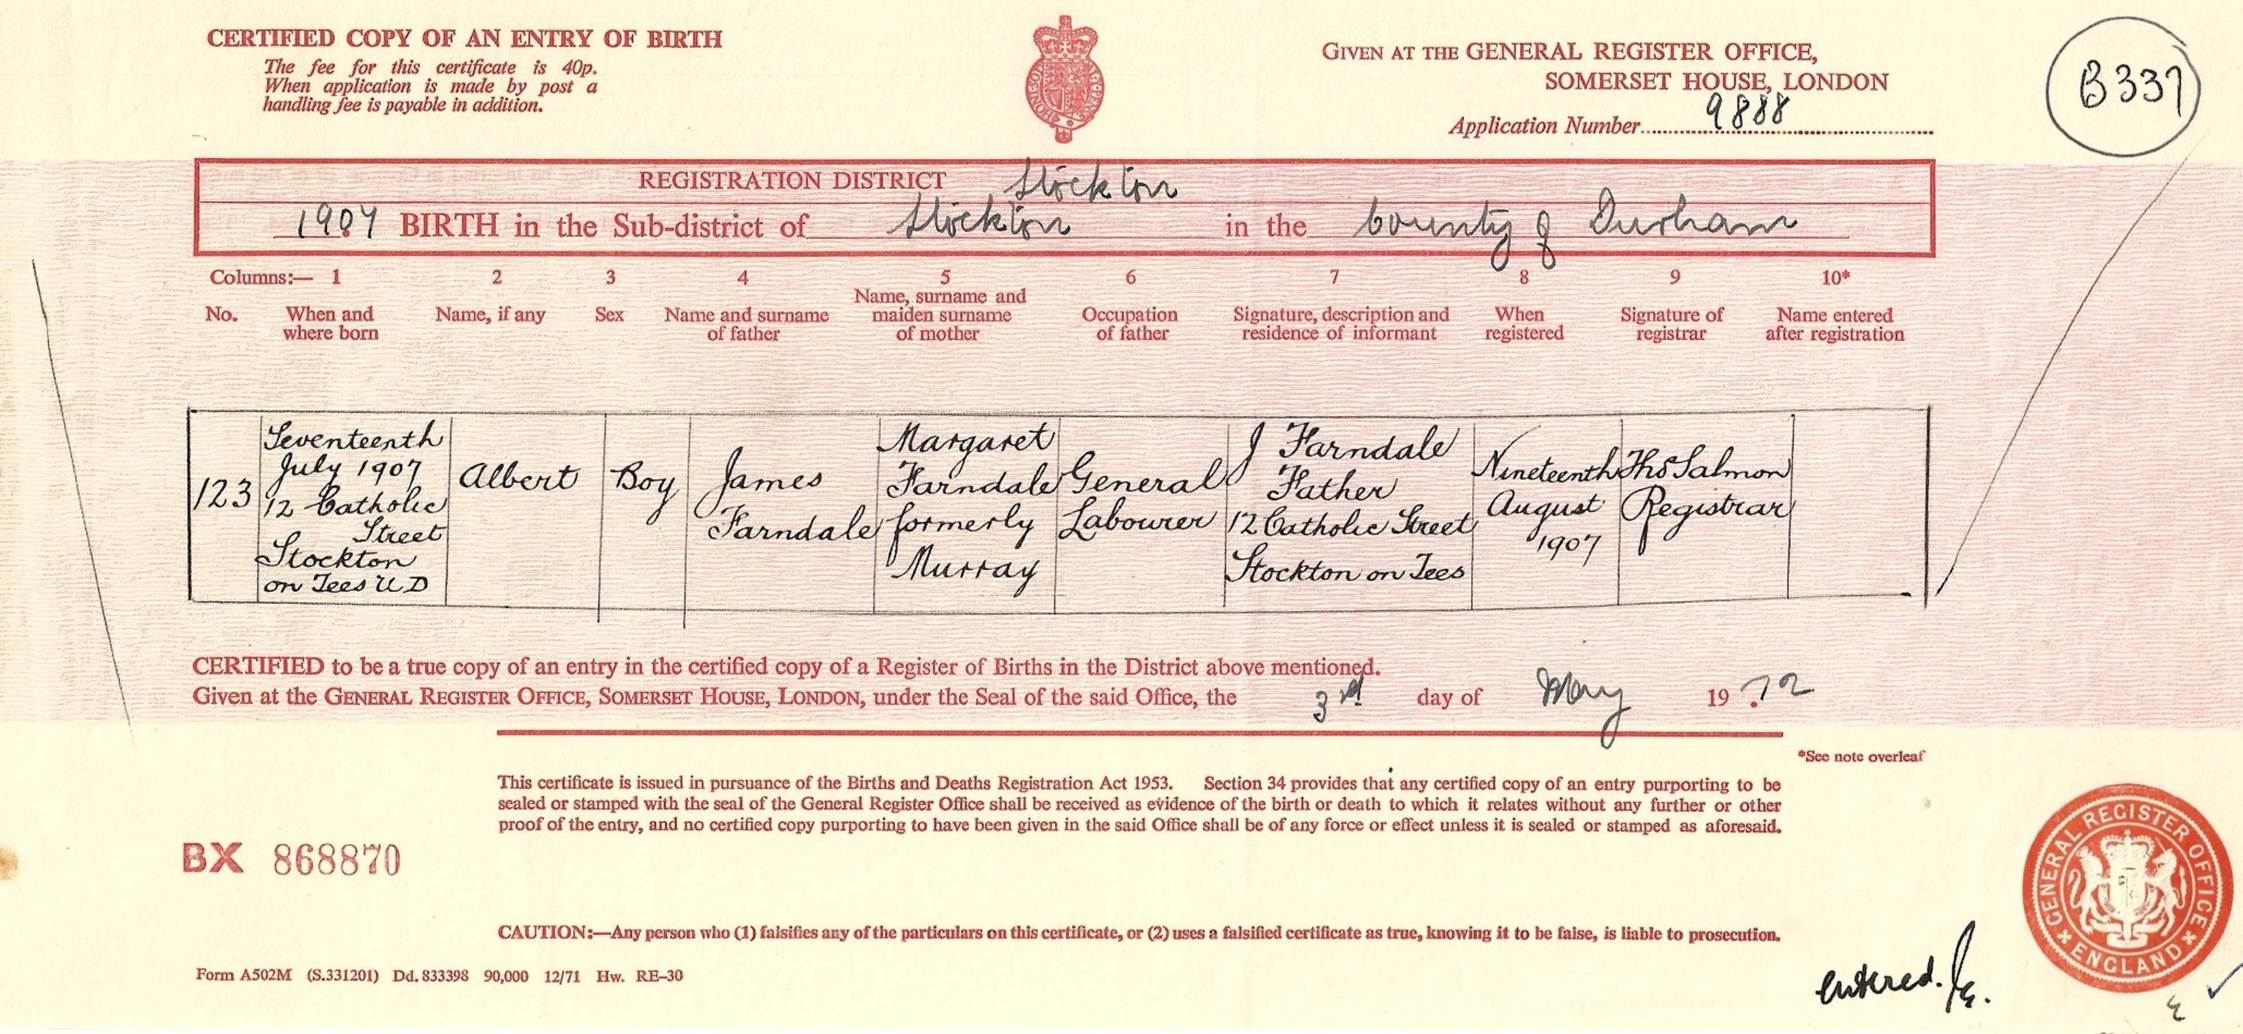 CERTIFIED COPY OF AN ENTRY OF BIRTH
The fee for this certificate is 40p.
When application is made by post a
handling fee is payable in addition.
GIVEN AT THE GENERAL REGISTER OFFICE,
SOMERSET HOUSE, LONDON
Application Number 9888
B337
REGISTRATION DISTRICT Stockton
1907 BIRTH in the Sub-district of Stockton in the County of Durham
Columns:— 1 2 3 4 5 6 7 8 9 10*
No.
When and
where born
Name, if any
Sex
Name and surname
of father
Name, surname and
maiden surname
of mother
Occupation
of father
Signature, description and
residence of informant
When
registered
Signature of
registrar
Name entered
after registration
123
Seventeenth
July 1907
12 Catholic
Street
Stockton
on Tees U D
Albert
Boy
James
Farndale
Margaret
Farndale
formerly
Murray
General
Labourer
J Farndale
Father
12 Catholic Street
Stockton on Tees
Nineteenth
August
1907
Thos Salmon
Registrar
CERTIFIED to be a true copy of an entry in the certified copy of a Register of Births in the District above mentioned.
Given at the GENERAL REGISTER OFFICE, SOMERSET HOUSE, LONDON, under the Seal of the said Office, the 3rd day of May 1972
*See note overleaf
This certificate is issued in pursuance of the Births and Deaths Registration Act 1953. Section 34 provides that any certified copy of an entry purporting to be
sealed or stamped with the seal of the General Register Office shall be received as evidence of the birth or death to which it relates without any further or other
proof of the entry, and no certified copy purporting to have been given in the said Office shall be of any force or effect unless it is sealed or stamped as aforesaid.
BX 868870
GENERAL REGISTER OFFICE
ENGLAND
CAUTION:—Any person who (1) falsifies any of the particulars on this certificate, or (2) uses a falsified certificate as true, knowing it to be false, is liable to prosecution.
Form A502M (S.331201) Dd. 833398 90,000 12/71 Hw. RE-30
entered.